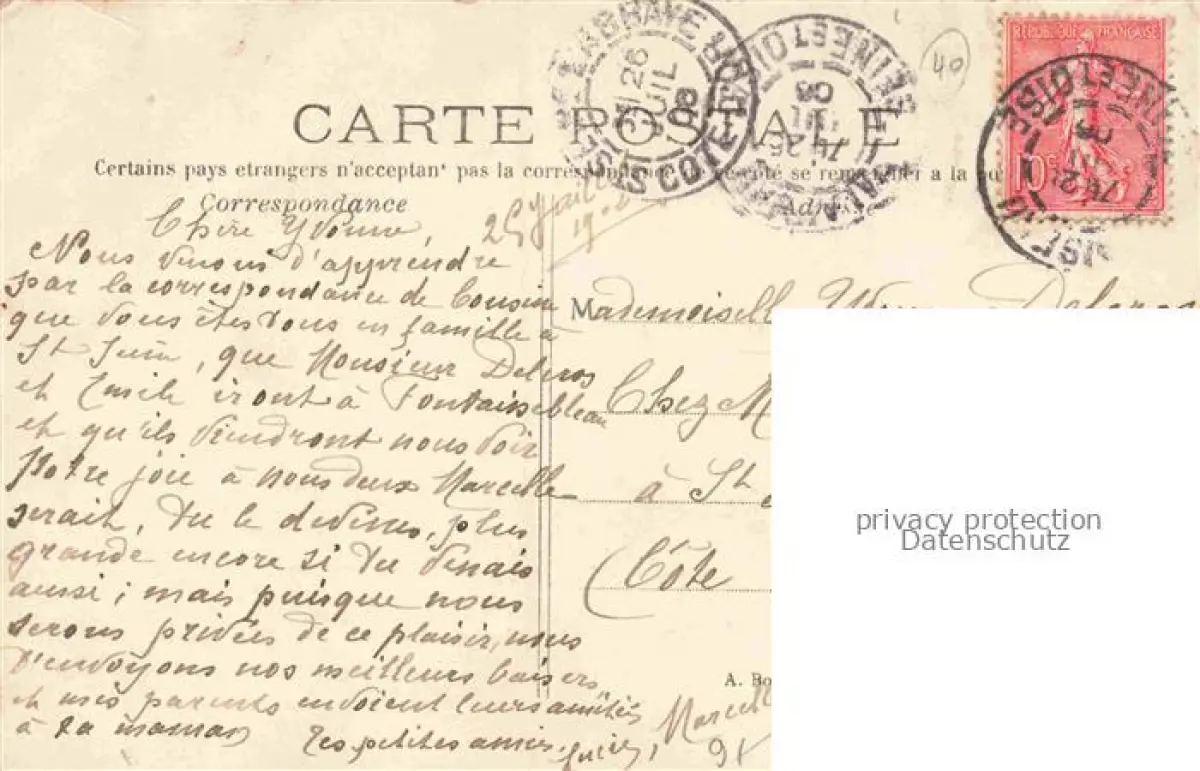 RÉPUBLIQUE FRANÇAISE
10c
40
26
JUIL
08
CÔTE D'OR
SEINE ET OISE
SEINE ET OISE
CARTE POSTALE
Certains pays etrangers n'acceptant pas la correspondance se a la
Correspondance
Adresse
25 Juillet
Chère Yvonne,
Nous venons d'apprendre
par la correspondance de Cousin
que vous êtes tous en famille à
St , que Monsieur Deleros
et Emile iront à Fontainebleau
et qu'ils viendront nous voir
Notre joie à nous deux Marcelle
serait, tu le devines, plus
grande encore si tu venais
aussi ; mais puisque nous
serons privées de ce plaisir, nous
t'envoyons nos meilleurs baisers
et mes parents envoient leurs amitiés
à ta maman
Tes petites amies.
Marcelle
Mademoiselle Yvonne
Chez M
à St
(Côte
A. Bo
privacy protection
Datenschutz